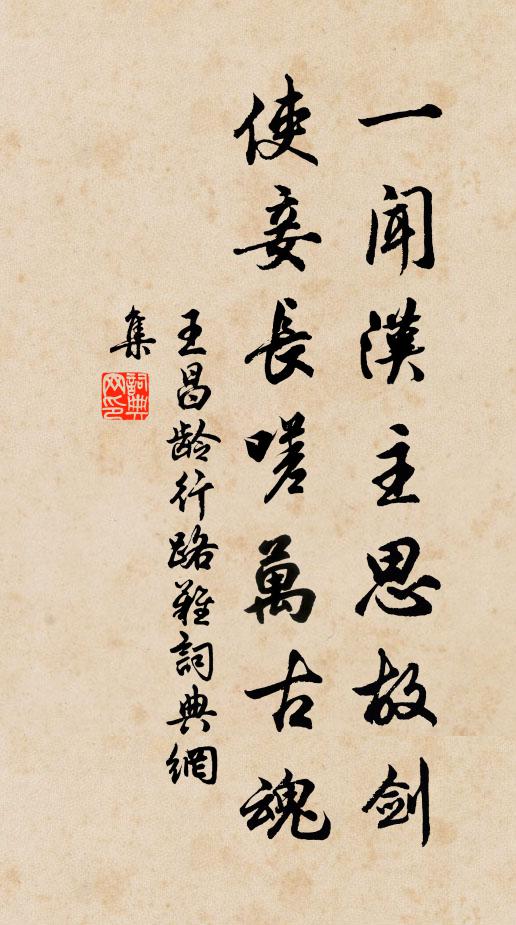 一聞漢主思故劍
使妾長嗟萬古魂
王昌齡行路難詞典網
集
詞典
网印